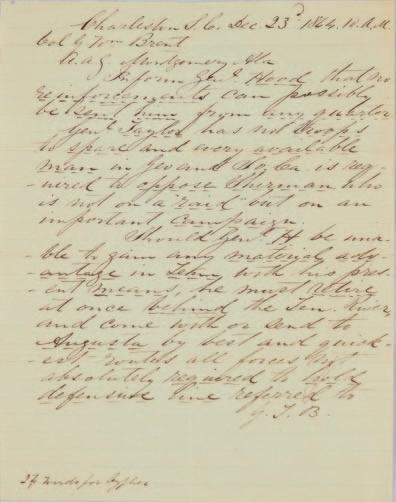 Charleston S.C. Dec. 23d 1864. 10 A.M.
Col G Wm Brent
A.A.G. Montgomery Ala
Inform Genl. Hood that no
reinforcements can possibly
be sent him from any quarter
Genl. Taylor has not troops
to spare and every available
man in Geo and So. Ca. is req-
-uired to oppose Sherman who
is not on a "raid" but on an
important campaign.
Should Genl. H be una-
-ble to gain any material adv-
-antage in Tenn with his pres-
-ent means, he must retire
at once behind the Ten. River,
and come with or send to
Augusta by best and quick-
-est routes all forces not
absolutely required to hold
defensive line referred to
G. T. B.
words for Cypher